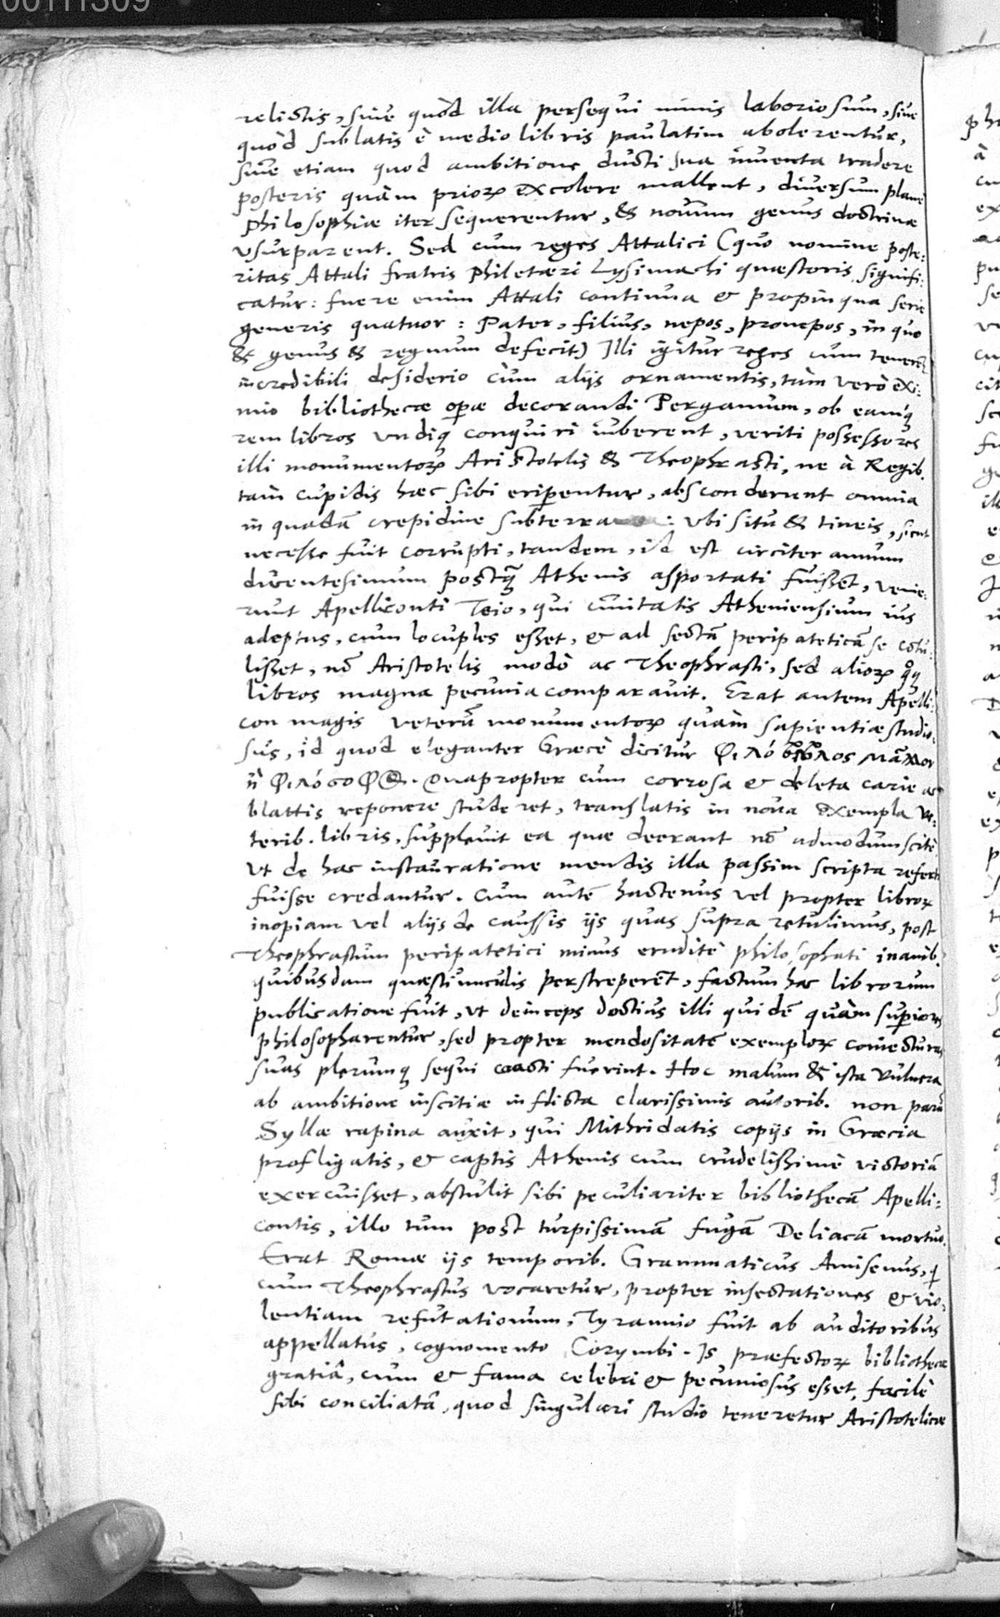 00111309
relictis, sive quòd illa persequi nimis laboriosum, sive
quòd sublatis è medio libris paulatim abolerentur,
sive etiam quod ambitione ducti sua inventa tradere
posteris quàm prioꝝ excolere mallent, diversum plane
philosophiæ iter sequerentur, & novum genus doctrinæ
vsurparent. Sed cum reges Attalici (quo nomine poste:
ritas Attali fratris Philetæri Lysimachi quæstoris signifi:
catur: fuere enim Attali continua & propinqua serie
generis quatuor: Pater, filius, nepos, pronepos, in quo
& genus & regnum defecit) Illi igitur reges cum tenerẽt
incredibili desiderio cum alijs ornamentis, tùm verò exi:
mio bibliothecæ operæ decorandi Pergamum, ob eamq́
rem libros vndiq́ conquiri iuberent, veriti possessores
illi monumentoꝝ Aristotelis & Theophrasti, ne à Regib.
tam cupidis hæc sibi eriperentur, absconderunt omnia
in quadã crepidine subterra : vbi situ & tineis, sicut
necesse fuit corrupti, tandem, id est circiter annum
ducentesimum postq̃ Athenis asportati fuissẽt, venie:
runt Apelliconti Teio, qui civitatis Atheniensium ius
adeptus, cum locuples esset, & ad sectã peripateticã se cõtu:
lisset, nõ Aristotelis modò ac Theophrasti, sed alioꝝ qͦq́
libros magna pecunia comparavit. Erat autem Apelli:
con magis veterũ monumentoꝝ quàm sapientiæ studio:
sus, id quod eleganter Græcè dicitur φιλόβιβλος μᾶλλον
ἢ φιλόσοφος. Quapropter cum corrosa & deleta carie ac
blattis reponere studeret, translatis in nova exempla ve:
terib. libris, supplevit ea quæ deerant nõ admodum scitè,
vt de hac instauratione mendis illa passim scripta referta
fuisse credantur. Cum autẽ hactenus vel propter libroꝝ
inopiam vel alijs de caussis ijs quas supra retulimus, post
Theophrastum peripatetici minus eruditè philosophati inanib.
quibusdam quæstiunculis perstreperẽt, factum hac librorum
publicatione fuit, vt deinceps doctius illi quidẽ quàm superiores
philosopharentur, sed propter mendositatẽ exemploꝝ coniecturas
suas plerumq́ sequi coacti fuerint. Hoc malum & ista vulnera
ab ambitione inscitiæ inflicta clarissimis autorib. non parũ
Syllæ rapina auxit, qui Mithridatis copijs in Græcia
profligatis, & captis Athenis cum crudelissimè victoriã
exercuisset, abstulit sibi peculiariter bibliothecã Apelli:
contis, illo tum post turpissimã fugã Deliacã mortuo.
Erat Romæ ijs temporib. Grammaticus Amisenus, q̃
cum Theophrastus vocaretur, propter insectationes & vio:
lentiam refutationum, Tyrannio fuit ab auditoribus
appellatus, cognomento Corymbi. Is præfectoꝝ bibliothecæ
gratiâ, cum & fama celebri & pecuniosus esset, facilè
sibi conciliatâ, quod singulari studio teneretur Aristotelicæ